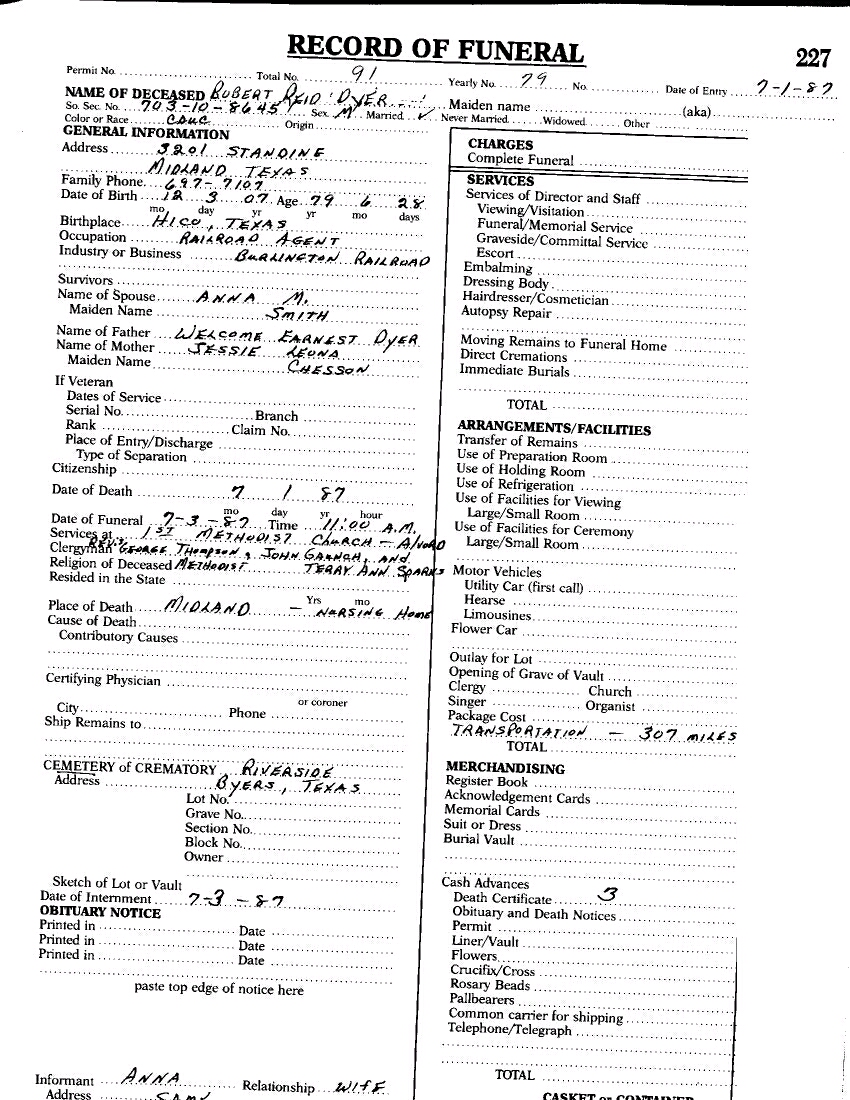 RECORD OF FUNERAL 227
Permit No. Total No. 91 Yearly No. 79 No. Date of Entry 7-1-87
NAME OF DECEASED ROBERT REID DYER Maiden name (aka)
So. Sec. No. 703-10-8645 Sex M Married ✓ Never Married Widowed Other
Color or Race CAUC Origin
GENERAL INFORMATION
Address 3201 STANDINE
MIDLAND TEXAS
Family Phone 697-7107
Date of Birth 12 3 07 Age 79 6 28
mo day yr yr mo days
Birthplace HICO, TEXAS
Occupation RAILROAD AGENT
Industry or Business BURLINGTON RAILROAD
Survivors
Name of Spouse ANNA M.
Maiden Name SMITH
Name of Father WELCOME EARNEST DYER
Name of Mother JESSIE LEONA
Maiden Name CHESSON
If Veteran
Dates of Service
Serial No. Branch
Rank Claim No.
Place of Entry/Discharge
Type of Separation
Citizenship
Date of Death 7 1 87
mo day yr hour
Date of Funeral 7-3-87 Time 11:00 A.M.
Services at 1ST METHODIST CHURCH - ALVORD
Clergyman REV'S. GEORGE THOMPSON, JOHN AND
Religion of Deceased METHODIST TERRY ANN SPARKS
Resided in the State
Yrs mo
Place of Death MIDLAND - NURSING HOME
Cause of Death
Contributory Causes
Certifying Physician
or coroner
City Phone
Ship Remains to
CEMETERY of CREMATORY RIVERSIDE
Address BYERS, TEXAS
Lot No.
Grave No.
Section No.
Block No.
Owner
Sketch of Lot or Vault
Date of Internment 7-3-87
OBITUARY NOTICE
Printed in Date
Printed in Date
Printed in Date
paste top edge of notice here
Informant ANNA Relationship WIFE
Address SAME
CHARGES
Complete Funeral
SERVICES
Services of Director and Staff
Viewing/Visitation
Funeral/Memorial Service
Graveside/Committal Service
Escort
Embalming
Dressing Body
Hairdresser/Cosmetician
Autopsy Repair
Moving Remains to Funeral Home
Direct Cremations
Immediate Burials
TOTAL
ARRANGEMENTS/FACILITIES
Transfer of Remains
Use of Preparation Room
Use of Holding Room
Use of Refrigeration
Use of Facilities for Viewing
Large/Small Room
Use of Facilities for Ceremony
Large/Small Room
Motor Vehicles
Utility Car (first call)
Hearse
Limousines
Flower Car
Outlay for Lot
Opening of Grave of Vault
Clergy Church
Singer Organist
Package Cost
TRANSPORTATION - 307 MILES
TOTAL
MERCHANDISING
Register Book
Acknowledgement Cards
Memorial Cards
Suit or Dress
Burial Vault
Cash Advances
Death Certificate 3
Obituary and Death Notices
Permit
Liner/Vault
Flowers
Crucifix/Cross
Rosary Beads
Pallbearers
Common carrier for shipping
Telephone/Telegraph
TOTAL
CASKET or CONTAINER